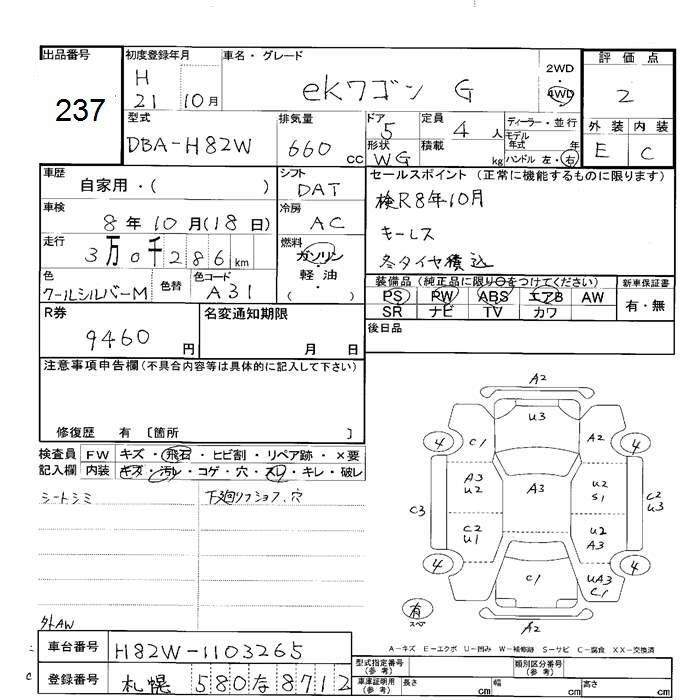 出品番号 初度登録年月 車名・グレード 2WD 評価点
237 H 21 10月 ekワゴン G 4WD 2
型式 排気量 ドア 定員 ディーラー・並行 外装 内装
DBA-H82W 660 cc 5 4人 モデル年式 年 E C
形状 WG 積載 kg ハンドル 左・右
車歴 シフト セールスポイント (正常に機能するものに限ります)
自家用・( ) DAT 検R8年10月
車検 冷房 キーレス
8年10月(18日) AC 冬タイヤ積込
走行 燃料
3万0千286km ガソリン・軽油・( )
色 色替 色コード 装備品(純正品に限り○をつけてください) 新車保証書
クールシルバーM A31 PS PW ABS エアB AW 有・無
SR ナビ TV カワ
R券 名変通知期限 後日品
9460円 月 日
注意事項申告欄(不具合内容等は具体的に記入して下さい)
修復歴 有 〔箇所 〕
検査員 FW キズ・飛石・ヒビ割・リペア跡・×要
記入欄 内装 キズ・汚レ・コゲ・穴・スレ・キレ・破レ
シートシミ 下廻リフショフ、穴
外AW
A2
U3
4 C1 A2 4
A3 U2 A3 U2 S1
C3 C2 U3
C2 U1 U2 A3
4 C1 UA3 C1 4
有 スペ
A2
A-キズ E-エクボ U-凹み W-補修跡 S-サビ C-腐食 XX-交換済
車台番号 H82W-1103265 型式指定番号(参考) 類別区分番号(参考)
登録番号 札幌 580な8712 車庫証明用(参考) 長さ cm 幅 cm 高さ cm